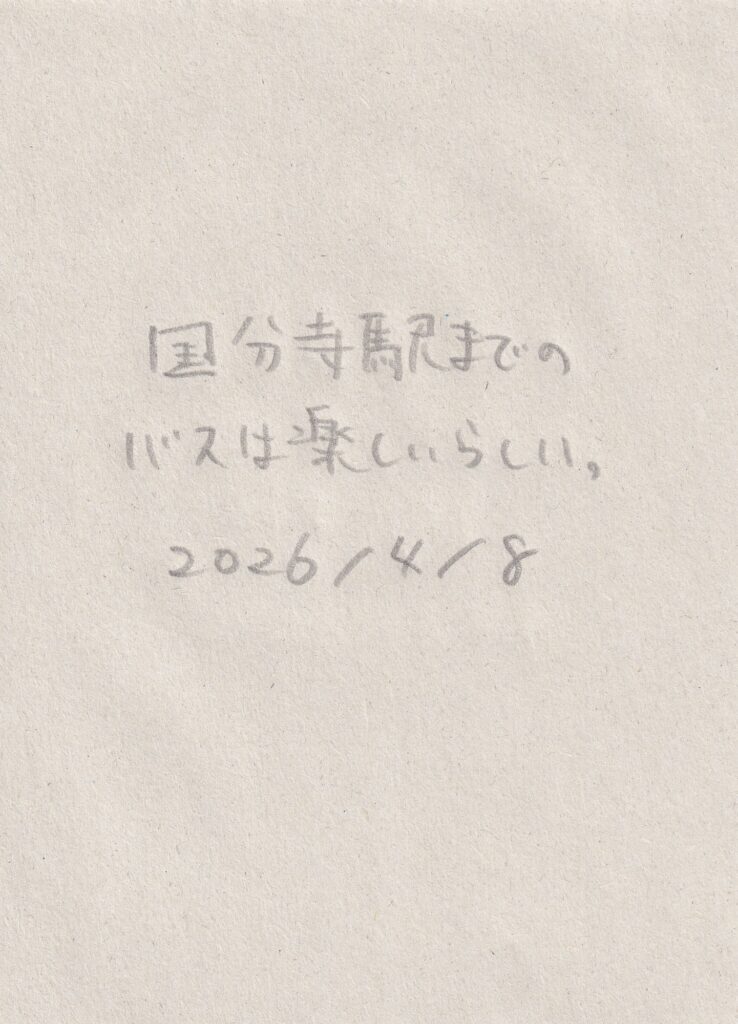 国分寺駅までの
バスは楽しいらしい,
2026/4/8